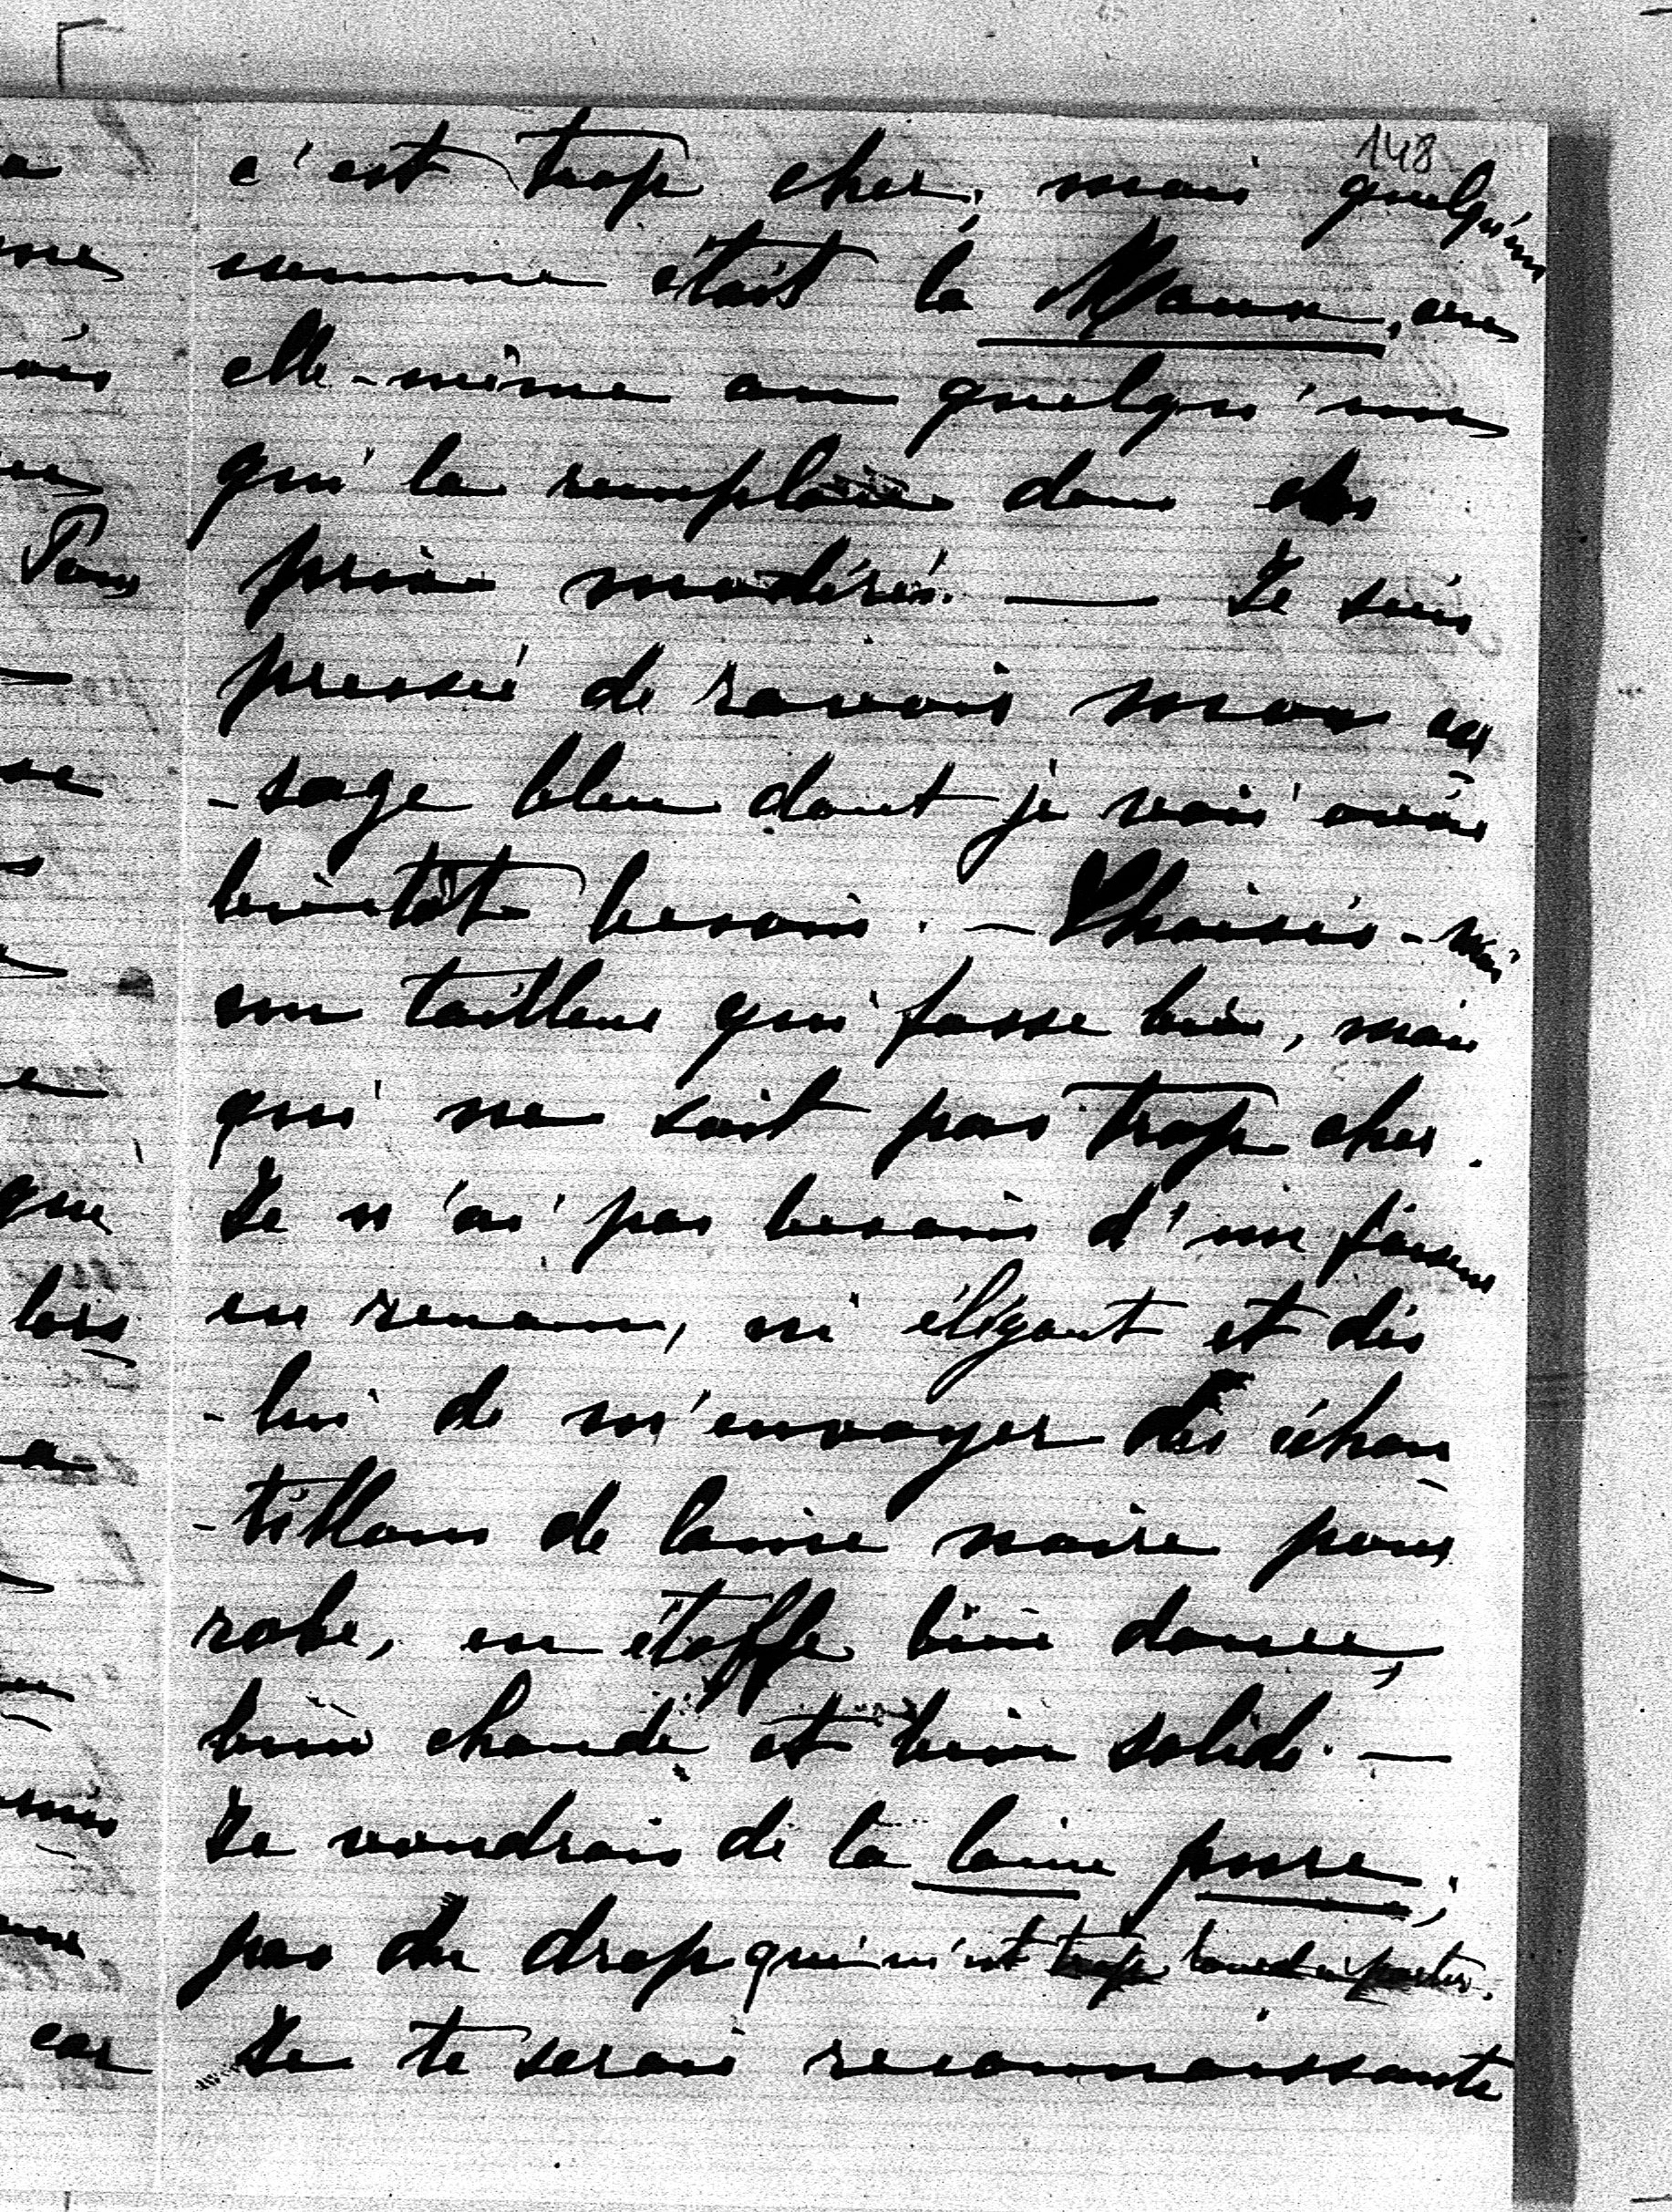 148
c'est trop cher, mais quelqu'un
comme était la Maun, ou
elle-même ou quelqu'une
qui la remplace dans des
prix modérés. — Je suis
pressée de ravoir mon cor
-sage bleu dont je vais avoir
bientôt besoin. — Choisis-moi
un tailleur qui fasse bien, mais
qui ne soit pas trop cher.
Je n'ai pas besoin d'un faiseur
en renom, ni élégant et dis
-lui de m'envoyer des échan
-tillons de laine noire pour
robe, en étoffe bien douce,
bien chaude et bien solide. —
Je voudrais de la laine pure,
pas du drap qui m'est trop lourd à porter.
Je te serais reconnaissante
Pour
que
lors
car